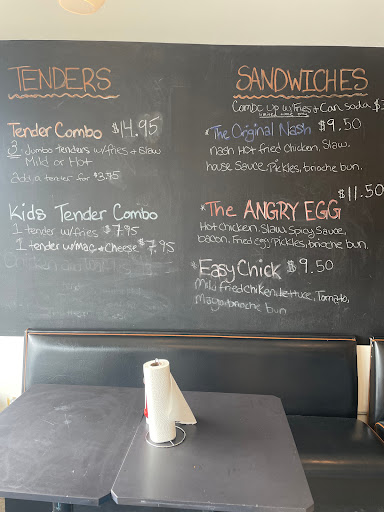 TENDERS
Tender Combo $14.95
3 Jumbo tenders w/fries + Slaw
Mild or Hot
add a tender for $3.75
Kids Tender Combo
1 tender w/fries $7.95
1 tender w/mac + Cheese $7.95
SANDWICHES
Combo Up w/Fries + Can soda $
*The Original Nash $9.50
nash Hot fried Chicken, Slaw,
house Sauce Pickles, brioche bun.
$11.50
*The ANGRY EGG
Hot Chicken Slaw Spicy Sauce,
bacon, Fried egg, Pickles, brioche bun.
*Easy Chick $9.50
Mild fried chiken lettuce, Tomato,
Mayo brioche bun